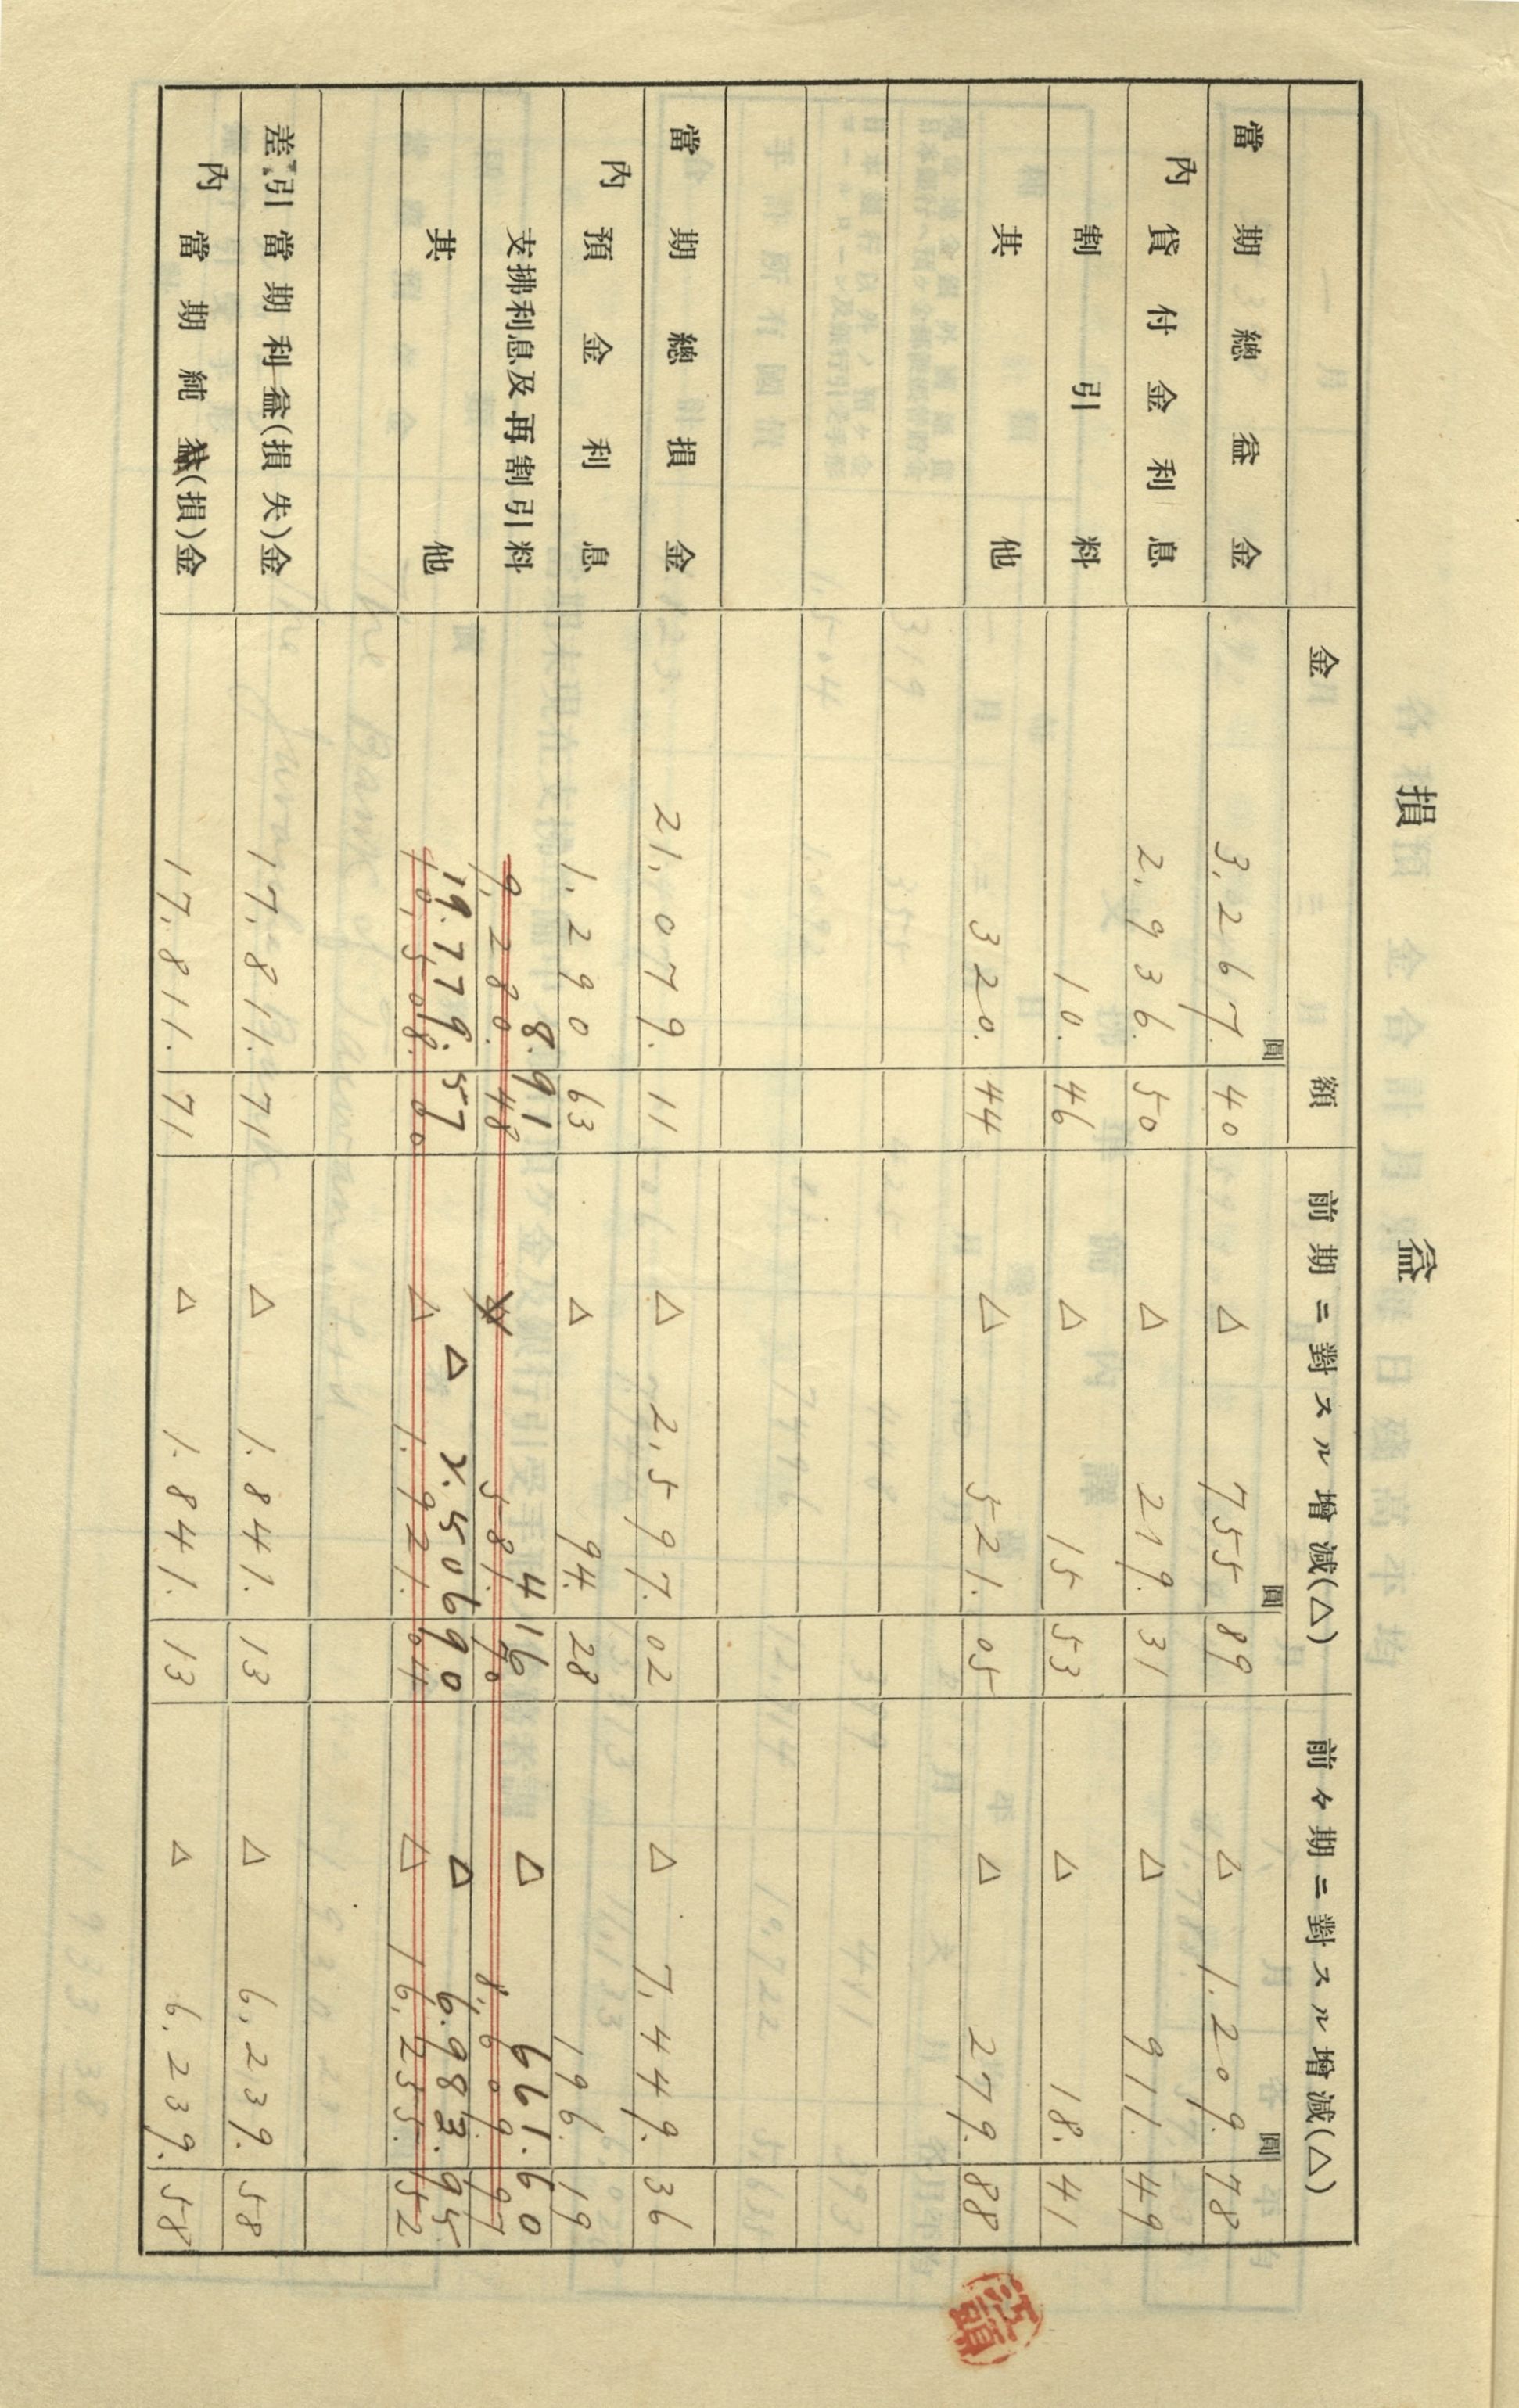 損益
金額 前期ニ對スル增減(△) 前々期ニ對スル增減(△)
圓 圓 圓
當期總益金 3,267.40 △ 755.89 △ 1.209.78
內 貸付金利息 2,936.50 △ 219.31 △ 911.49
割引料 10.46 △ 15.53 △ 18.41
其他 320.44 △ 521.05 △ 279.88
當期總損金 21,079.11 △ 2,597.02 △ 7,449.36
內 預金利息 1,290.63 △ 94.28 196.19
支拂利息及再割引料 8.91 4 16 △ 661.60
9,280.48 581.70 8,609.97
其他 19.779.57 △ 2.506 90 △ 6.983.95
10,508.00 △ 1.921.04 △ 16,255.52
差引當期利益(損失)金 17,811.71 △ 1.841.13 △ 6,239.58
內當期純益(損)金 17.811.71 △ 1.841.13 △ 6,239.58